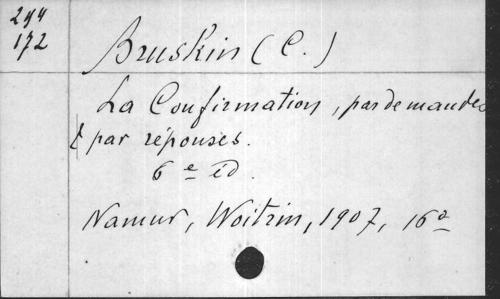 244
172
Bruskin (C.)
La Confirmation, par demandes
& par réponses.
6e éd.
Namur, Woitrin, 1907, 16o